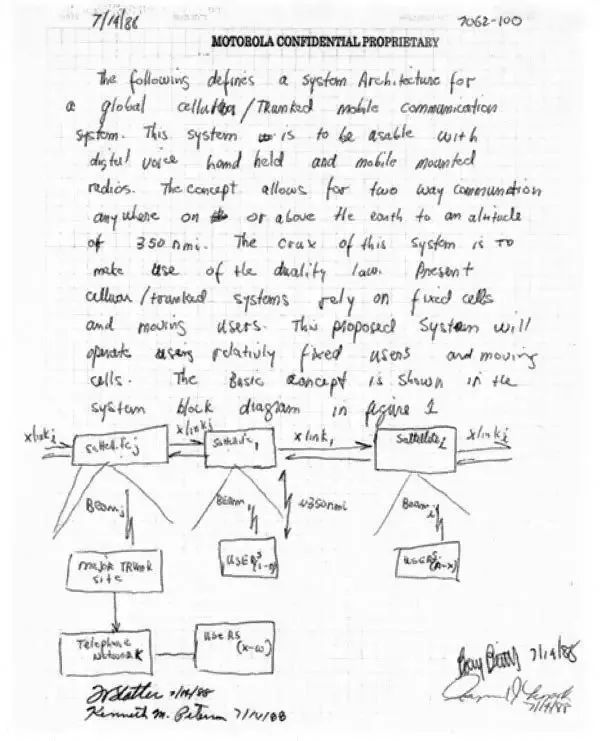 7/14/88 7062-100
MOTOROLA CONFIDENTIAL PROPRIETARY
The following defines a system Architecture for
a global cellular/Trunked mobile communication
system. This system is to be usable with
digital voice hand held and mobile mounted
radios. The concept allows for two way communition
any where on or above the earth to an altitude
of 350 nmi. The crux of this system is TO
make use of the duality law. Present
celluar/trunked systems rely on fixed cells
and moving users. This proposed System will
operate using relativly fixed users and moving
cells. The Basic concept is shown in the
system block diagram in figure 1
xlinki satellitej xlinkj satellite1 xlink1 Satellite2 xlinki
Beamj Beam1 ~350nmi Beami
USERS (1-n) USERS (n-x)
major TRUNK
site
Telephone
Network
USERS
(x-w)
7/14/88
7/14/88
Kenneth M. Peterson 7/14/88
7/14/88